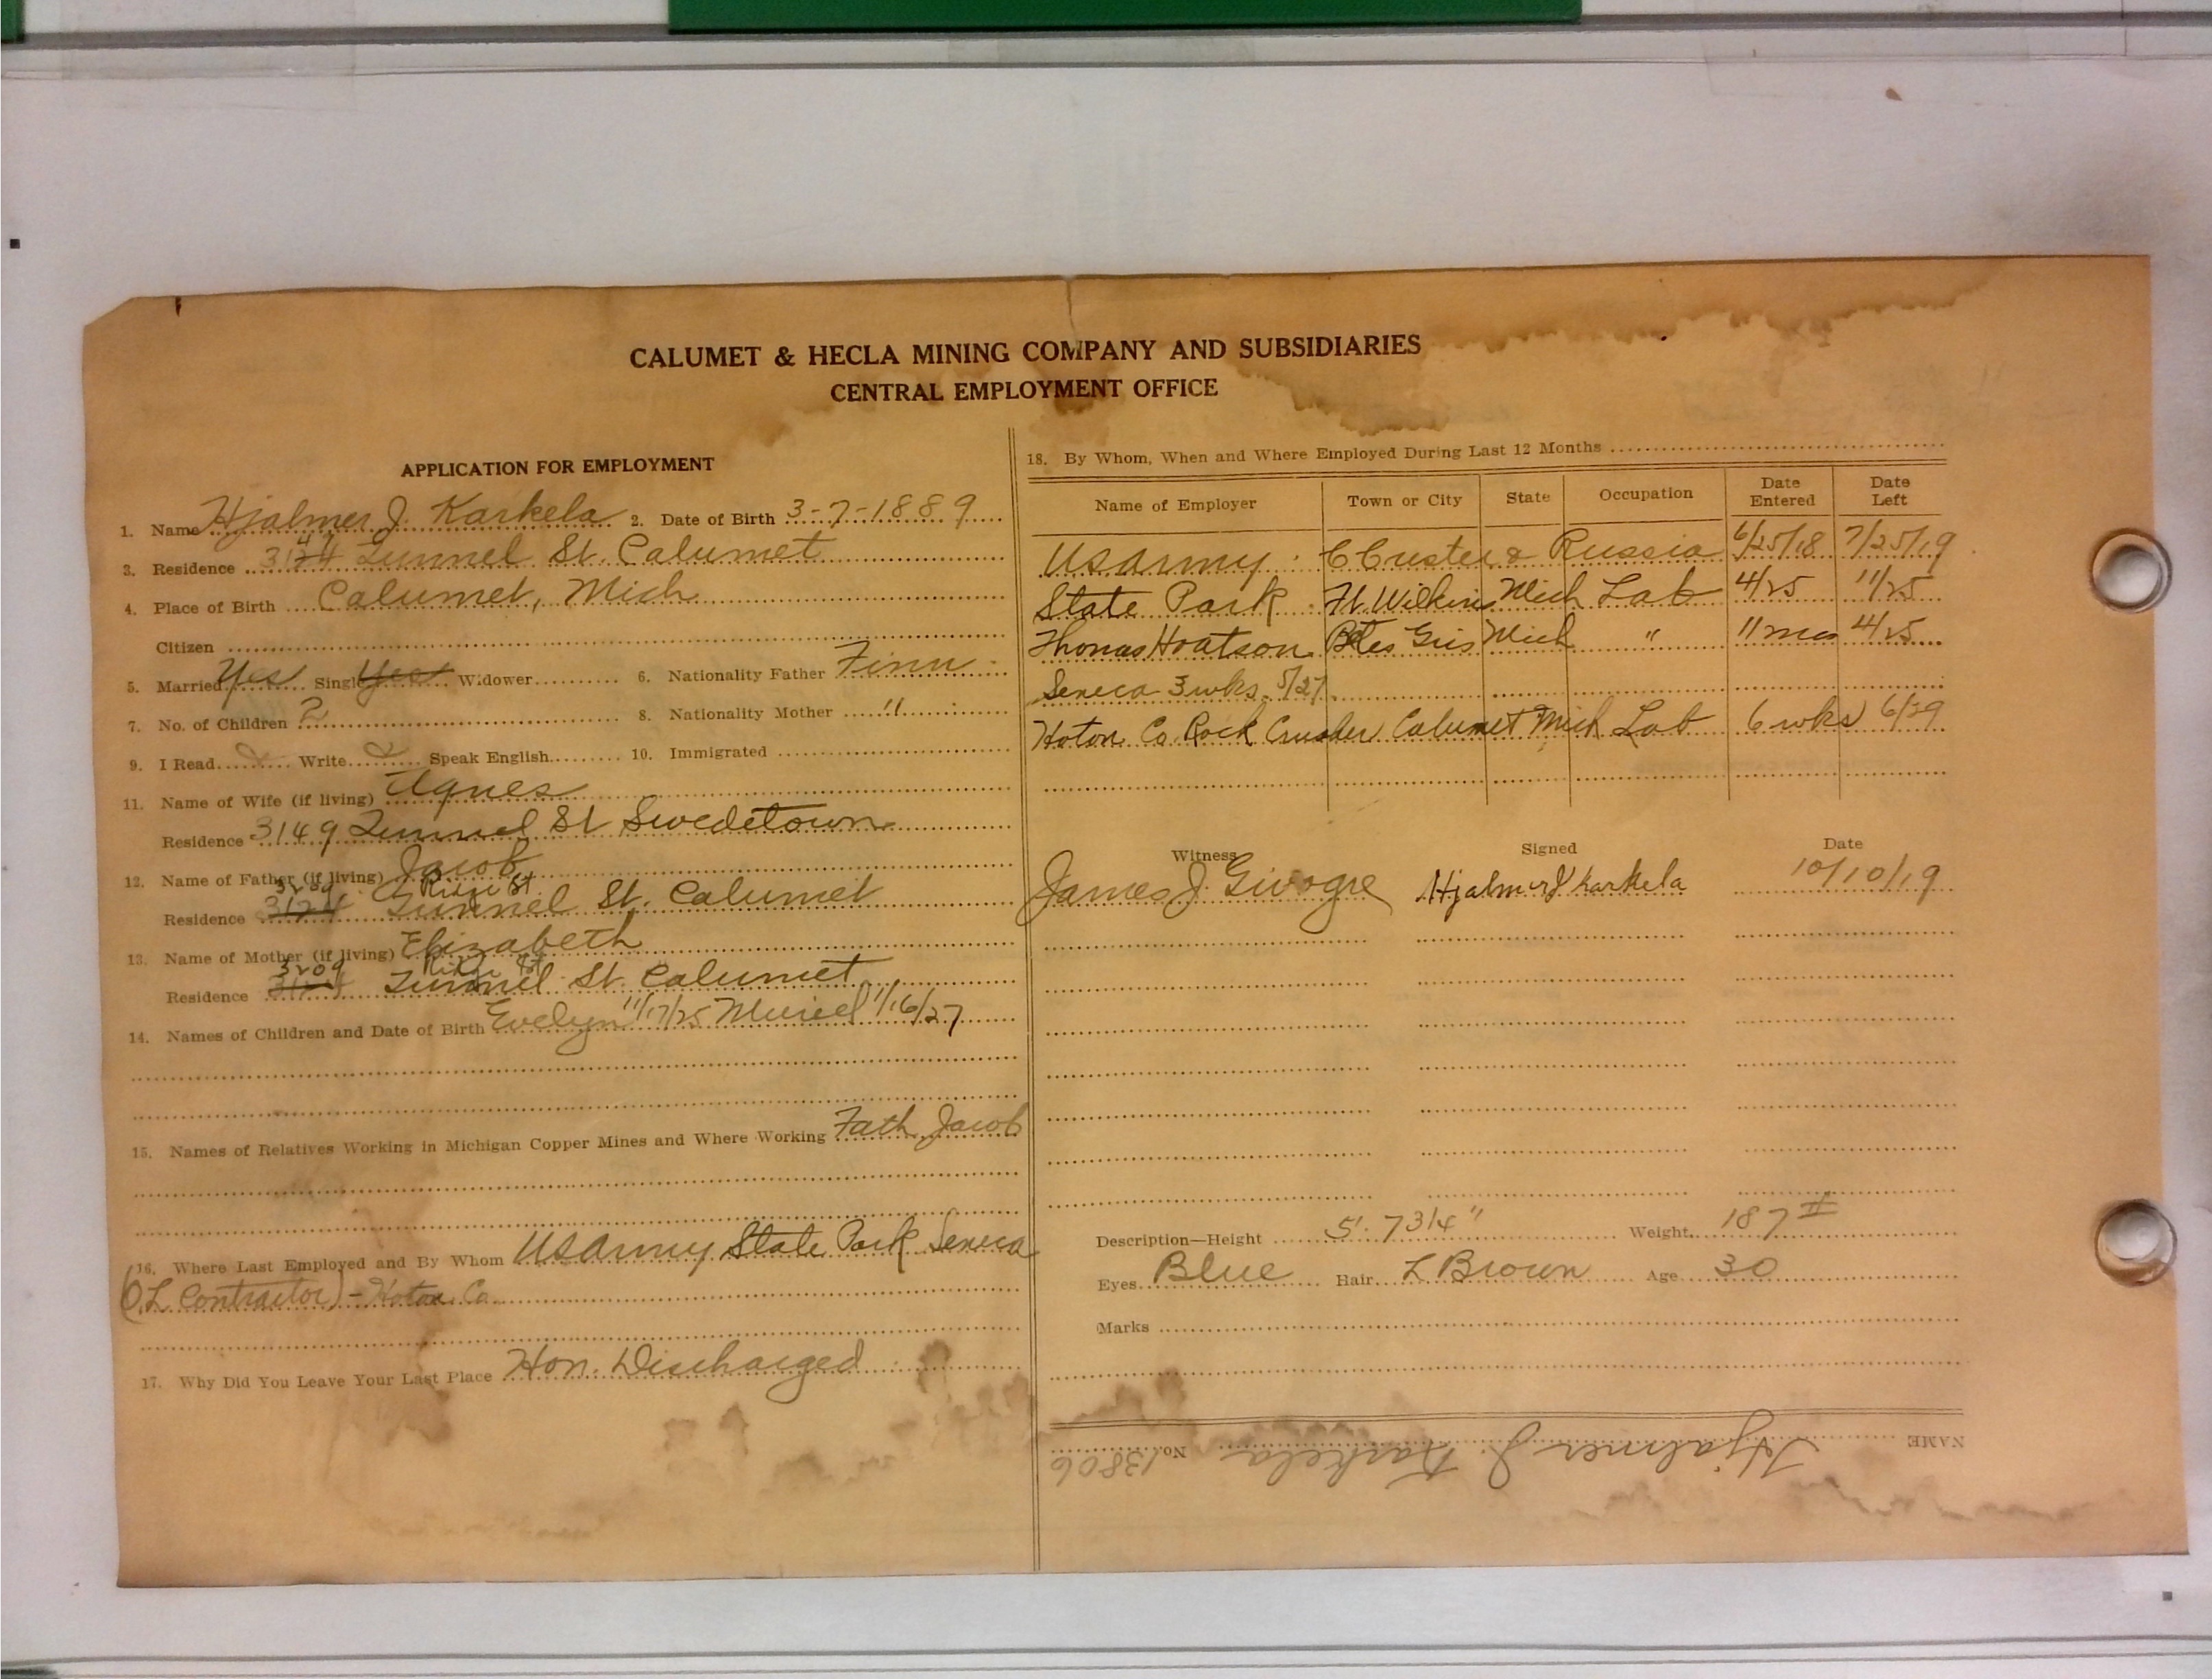 CALUMET & HECLA MINING COMPANY AND SUBSIDIARIES
CENTRAL EMPLOYMENT OFFICE
APPLICATION FOR EMPLOYMENT
1. Name Hjalmer J. Karkela 2. Date of Birth 3-7-1889
3. Residence Tunnel St. Calumet
4. Place of Birth Calumet, Mich
Citizen
5. Married Yes Single Yes Widower 6. Nationality Father Finn
7. No. of Children 2 8. Nationality Mother "
9. I Read Write Speak English 10. Immigrated
11. Name of Wife (if living) Agnes
Residence 3149 Tunnel St Swedetown
12. Name of Father (if living) Jacob
3209 Ridge St
Residence 3124 Tunnel St. Calumet
13. Name of Mother (if living) Elizabeth
3209 Ridge St
Residence 3124 Tunnel St. Calumet
14. Names of Children and Date of Birth Evelyn 11/17/25 Muriel 1/16/27
15. Names of Relatives Working in Michigan Copper Mines and Where Working Fath Jacob
16. Where Last Employed and By Whom US Army State Park Seneca
(O.L Contractor) - Hoton Co
17. Why Did You Leave Your Last Place Hon. Discharged
18. By Whom, When and Where Employed During Last 12 Months
Name of Employer Town or City State Occupation Date Entered Date Left
US Army C Custer & Russia 6/25/18 7/25/19
State Park Ft. Wilkins Mich Lab 4/25 11/25
Thomas Hoatson Bete Gris Mich " 11 mos 4/25
Seneca 3 wks 5/27
Hoton Co Rock Crusher Calumet Mich Lab 6 wks 6/29
Witness Signed Date
James J. Givogre Hjalmer J Karkela 10/10/19
Description—Height 5' 7 3/4" Weight 187 #
Eyes Blue Hair L Brown Age 30
Marks
NAME Hjalmer J. Karkela No. 13806